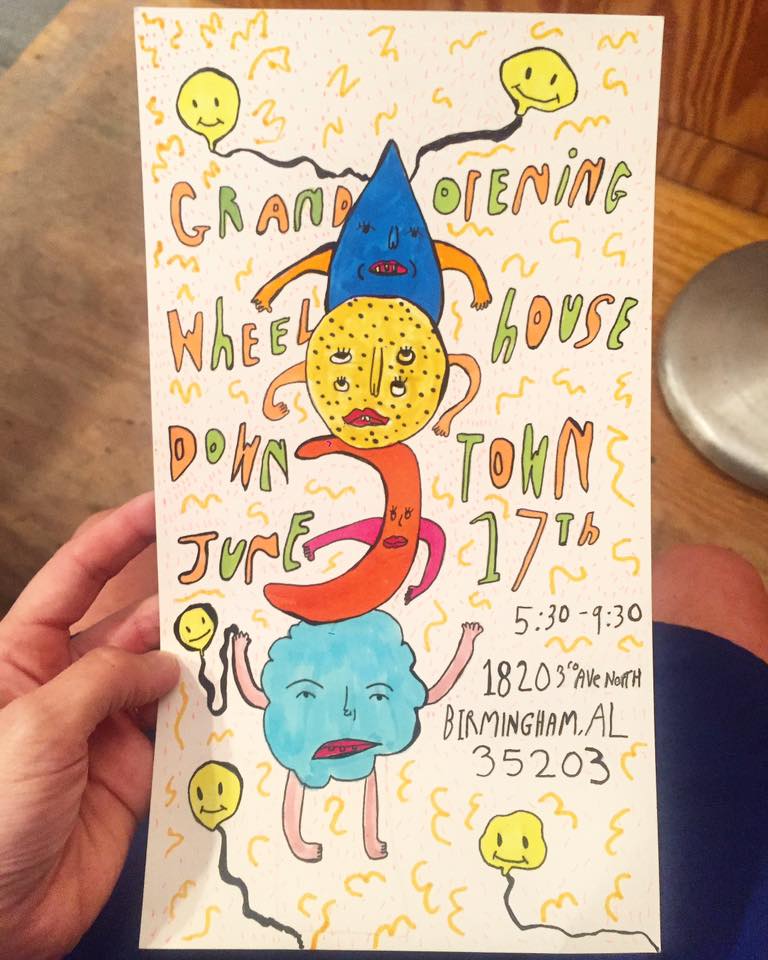 GRAND OPENING
WHEEL HOUSE
DOWN TOWN
JUNE 17Th
5:30 - 9:30
1820 3rd AVE NORTH
BIRMINGHAM, AL
35203